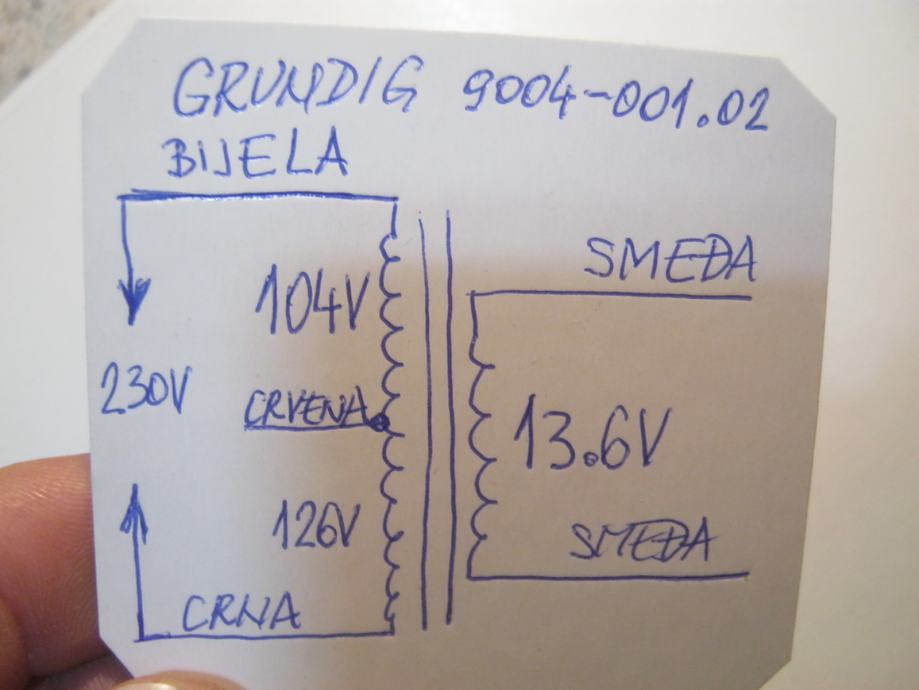 GRUNDIG 9004-001.02
BIJELA
SMEĐA
104V
230V
CRVENA
13.6V
126V
SMEĐA
CRNA